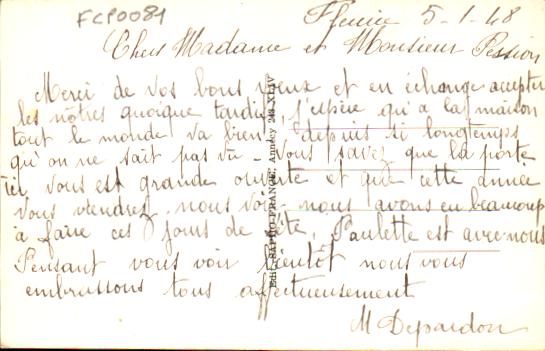 FCP0084
Fleurie 5-1-48
Chers Madame et Monsieur Pession
Merci de vos bons vœux et en échange acceptez
les nôtres quoique tardifs, j'espère qu'a la maison
tout le monde va bien depuis si longtemps
qu'on ne sait pas vu - Vous savez que la porte
ici vous est grande ouverte et que cette année
vous viendrez nous voir nous avons eu beaucoup
à faire ces jours de fête, Paulette est avec nous
Pensant vous voir bientôt nous vous
embrassons tous affectueusement
M Depardon
Edit. SAPHO-FRANCE, Annecy